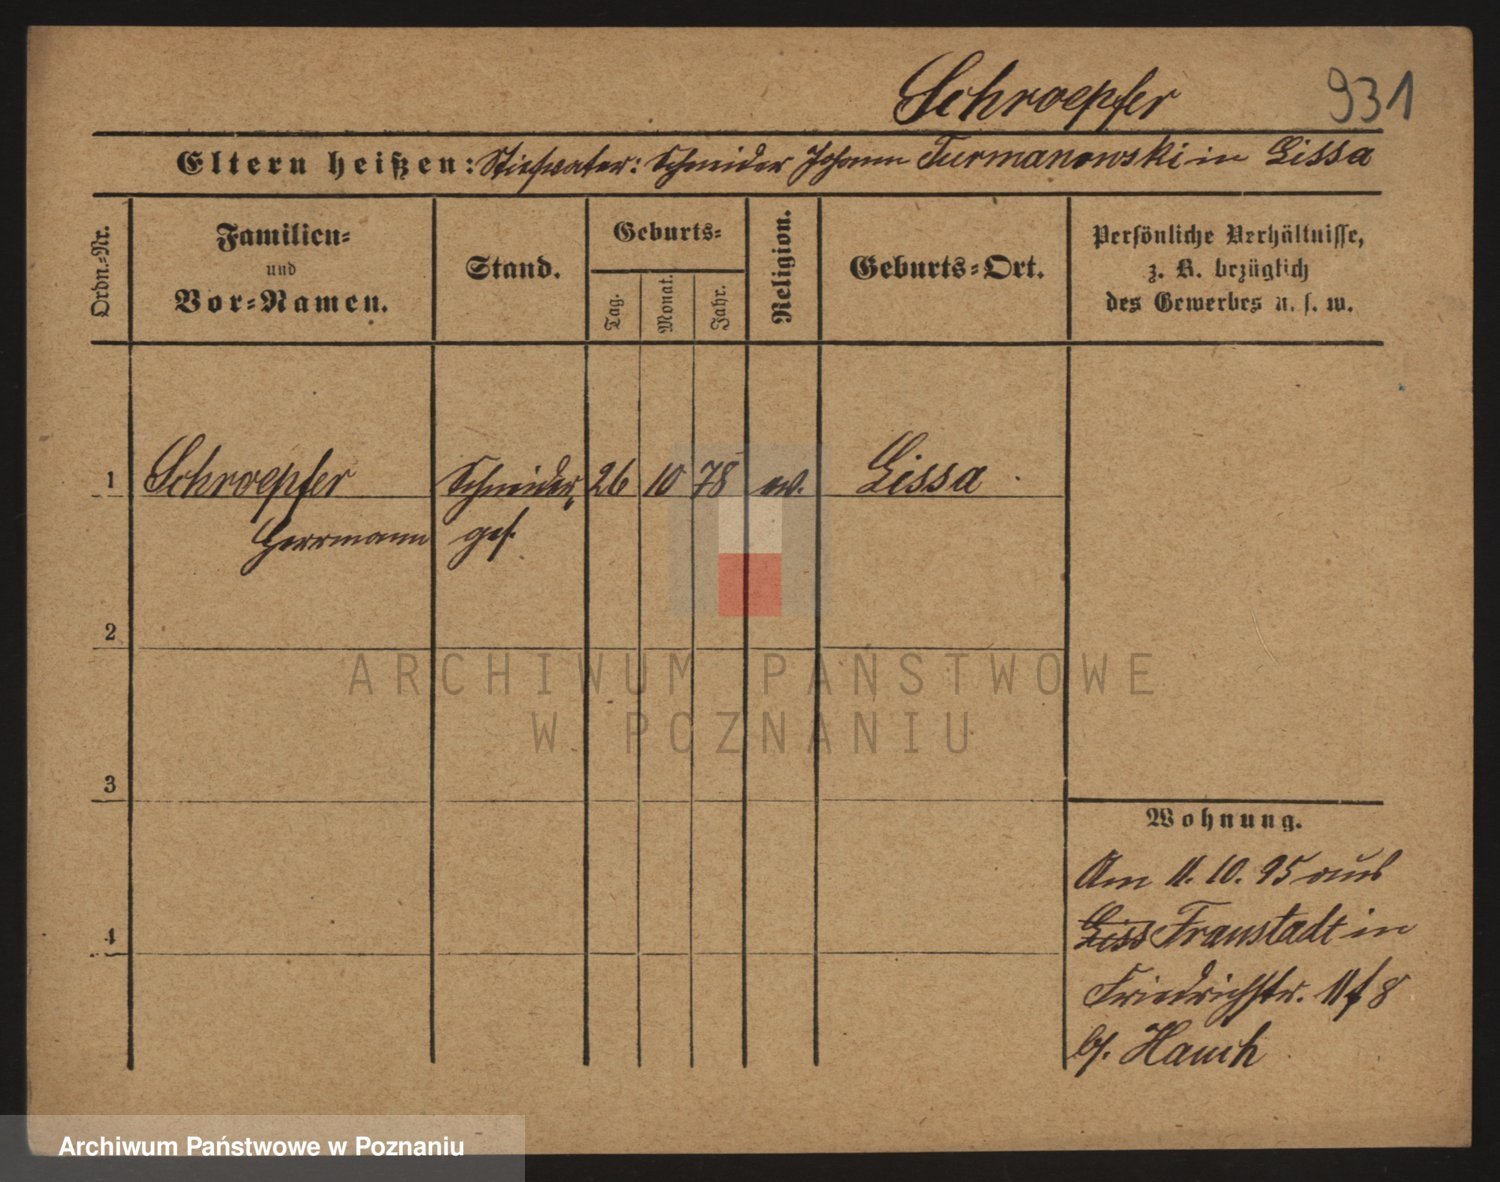 Schroepfer 931
Eltern heißen: Stiefvater: Schneider Johann Turmanowski in Lissa
Ordn.-Nr.
Familien-
und
Vor-Namen.
Stand.
Geburts-
Tag.
Monat.
Jahr.
Religion.
Geburts-Ort.
Persönliche Verhältnisse,
z. B. bezüglich
des Gewerbes u. s. w.
1 Schroepfer Schneider 26 10 78 ev. Lissa
Herrmann ges.
2
3
4
Wohnung.
Am 11. 10. 95 aus
Liss Fraustadt in
Friedrichstr. 8
b/. Hauch
ARCHIWUM PAŃSTWOWE
W POZNANIU
Archiwum Państwowe w Poznaniu